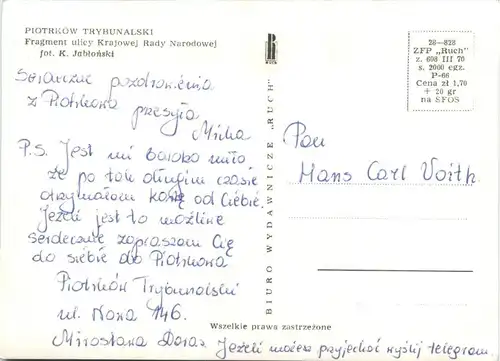 PIOTRKÓW TRYBUNALSKI
Fragment ulicy Krajowej Rady Narodowej
fot. K. Jabłoński
Serdeczne pozdrowienia
z Piotrkowa przesyła
Mirka
P.S. Jest mi bardzo miło
że po tak długim czasie
otrzymałam kartę od Ciebie.
Jeżeli jest to możliwe
serdecznie zapraszam Cię
do siebie do Piotrkowa
Piotrków Trybunalski
ul. Nowa 146.
Mirosława
Jeżeli możesz przyjechać wyślij telegram
RUCH
BIURO WYDAWNICZE „RUCH"
28—828
ZFP „Ruch"
z. 608 III 70
s. 2000 egz.
P-66
Cena zł 1,70
+ 20 gr
na SFOS
Pan
Hans Carl Voith
Wszelkie prawa zastrzeżone